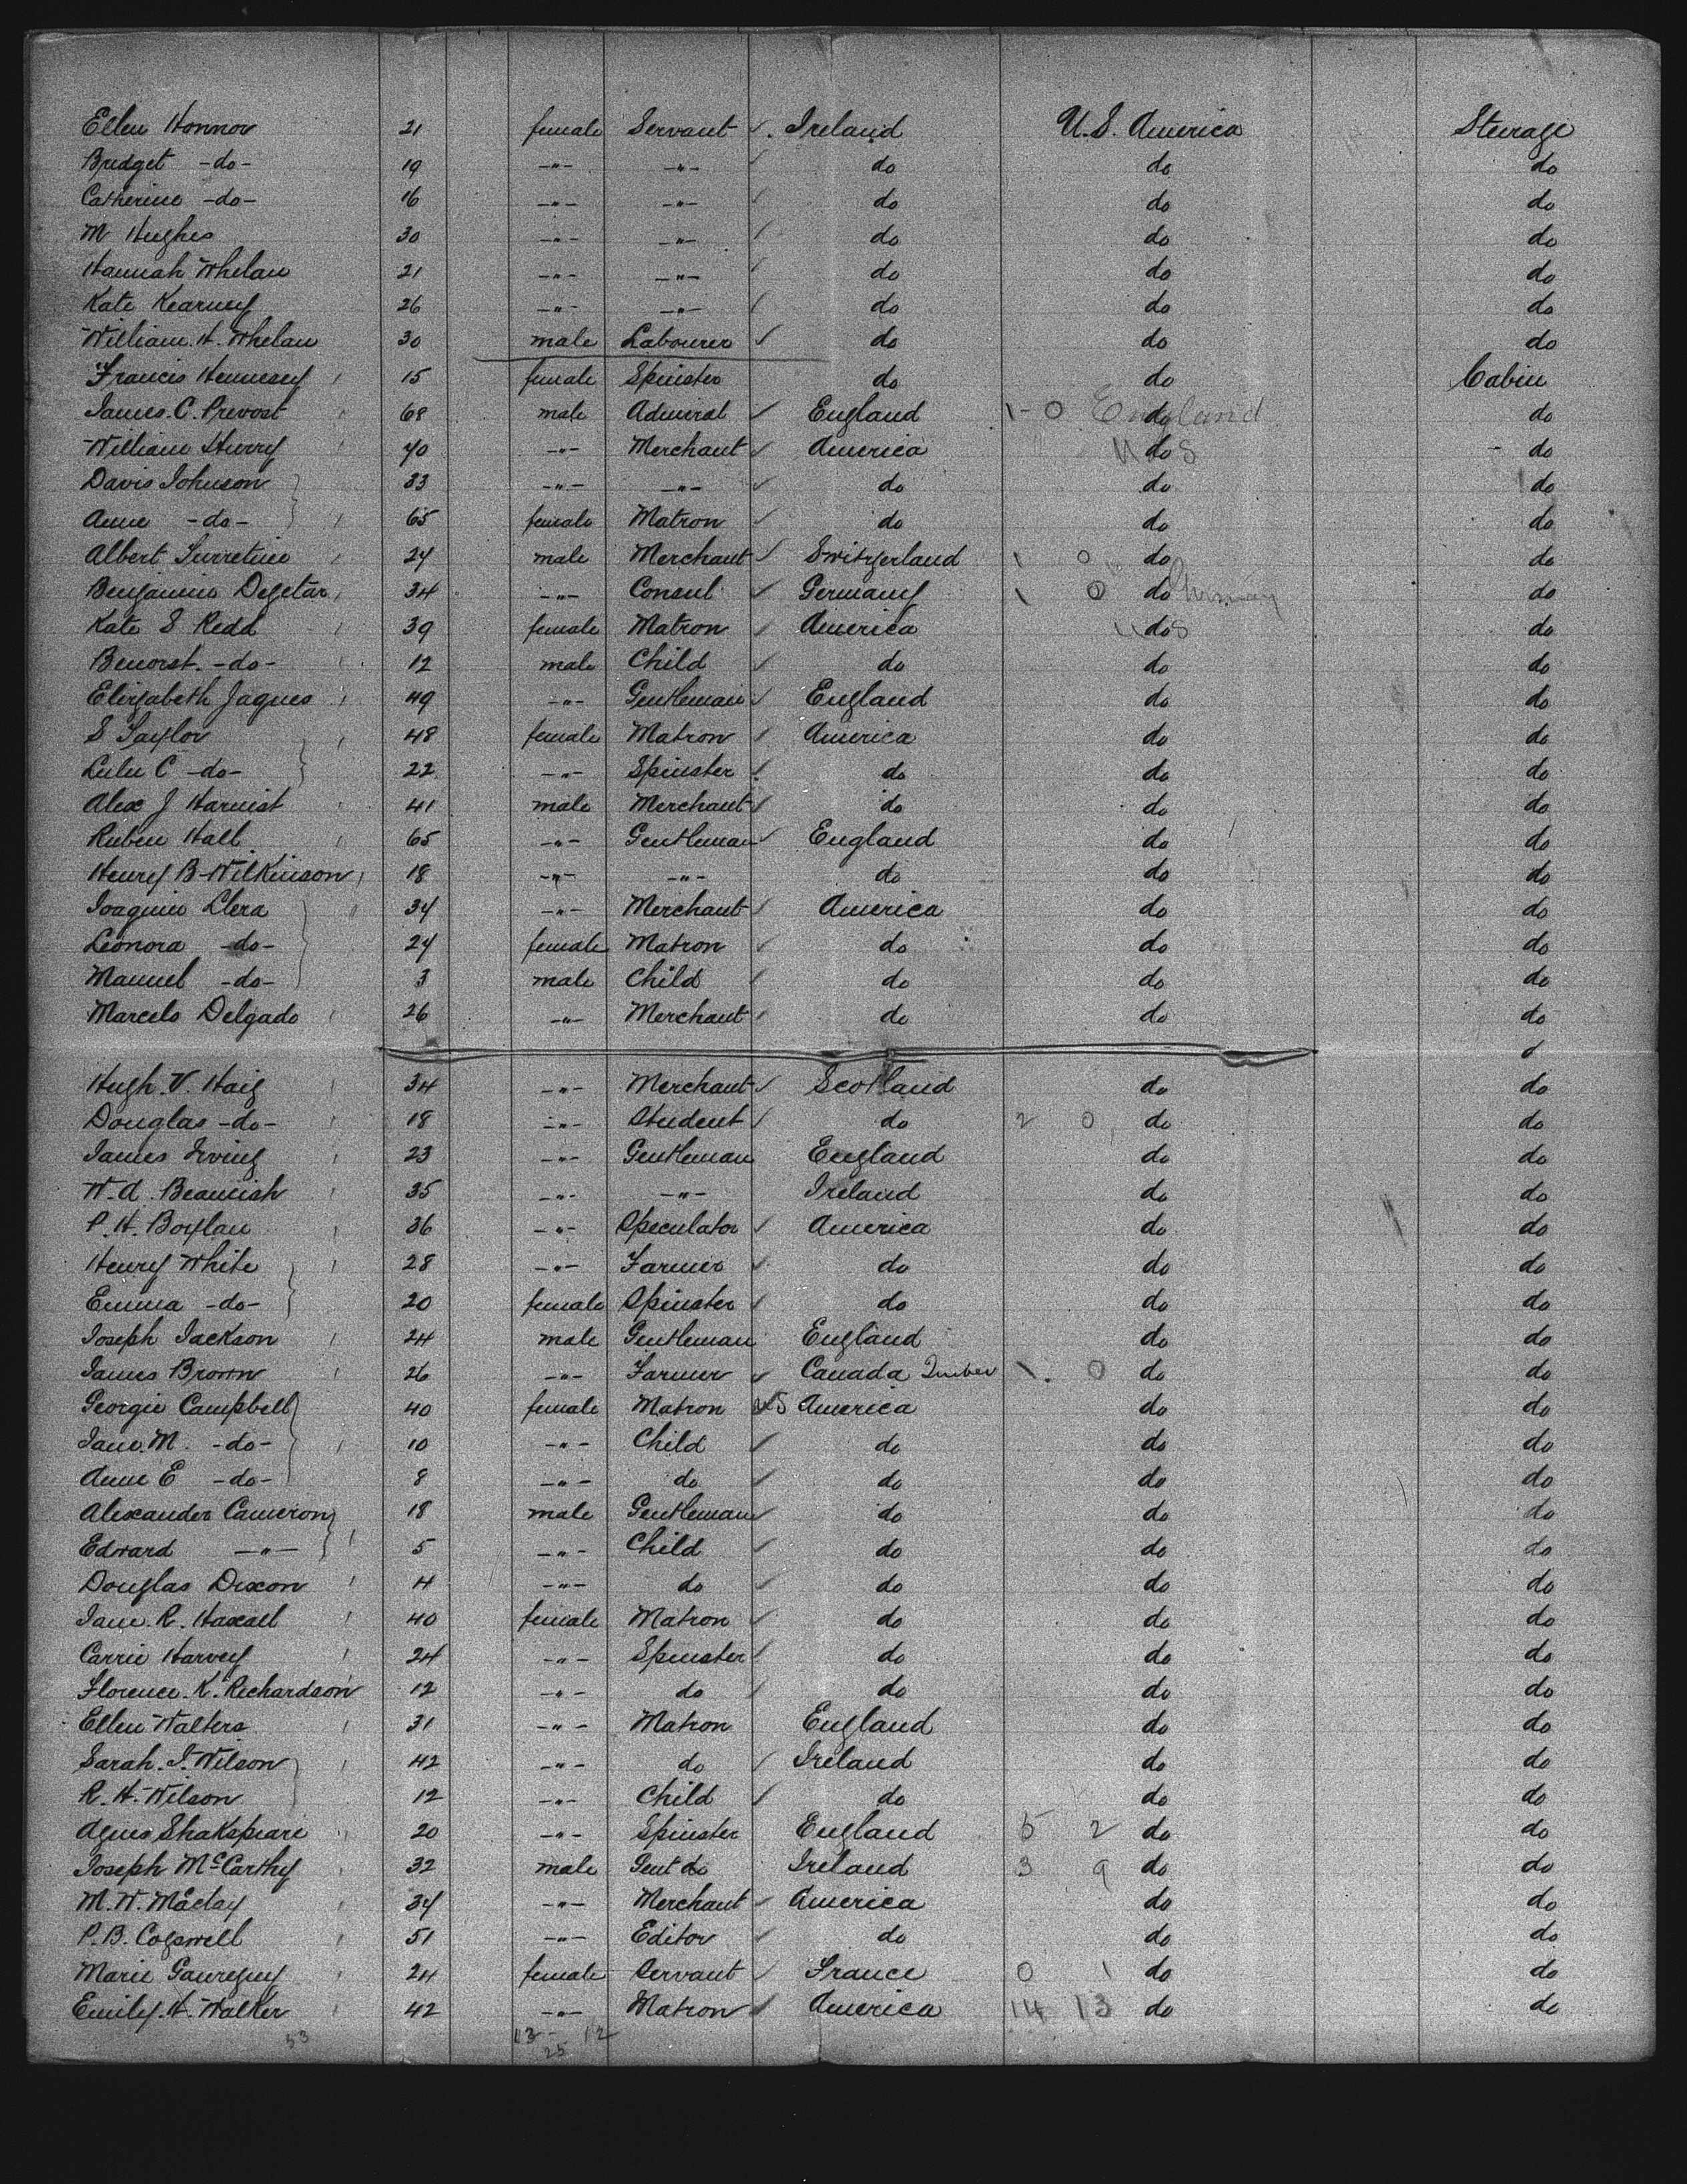 Ellen Honnor 21 female Servant Ireland U.S. America Steerage
Bridget -do- 19 -"- -"- do do do
Catherine -do- 16 -"- -"- do do do
M Hughes 30 -"- -"- do do do
Hannah Whelan 21 -"- -"- do do do
Kate Kearney 26 -"- -"- do do do
William. H. Whelan 30 male Labourer do do do
Francis Hennesey 15 female Spinster do do Cabin
James. C. Prevost 68 male Admiral England 1-0 do England do
William Sturry 40 -"- Merchant America do U S do
Davis Johnson 33 -"- -"- do do do
Anne -do- 65 female Matron do do do
Albert 24 male Merchant Switzerland 1 0 do do
Benjamin Degetar 34 -"- Consul Germany 1 0 do Germany do
Kate S Redd 39 female Matron America do U S do
-do- 12 male Child do do do
Elizabeth Jaques 49 -"- Gentleman England do do
S Taylor 48 female Matron America do do
Lulu C -do- 22 -"- Spinster do do do
Alex J 41 male Merchant do do do
Ruben Hall 65 -"- Gentleman England do do
Henry B Wilkinson 18 -"- -"- do do do
Joaquin Llera 34 -"- Merchant America do do
Leonora -do- 24 female Matron do do do
Manuel -do- 3 male Child do do do
Marcelo Delgado 26 -"- Merchant do do do
Hugh. V. Haig 34 -"- Merchant Scotland do do
Douglas -do- 18 -"- Student do 2 0 do do
James Irving 23 -"- Gentleman England do do
W. A. Beamish 35 -"- -"- Ireland do do
P. H. Boylan 36 -"- Speculator America do do
Henry White 28 -"- Farmer do do do
Emma -do- 20 female Spinster do do do
Joseph Jackson 24 male Gentleman England do do
James Brown 26 -"- Farmer Canada 1. 0 do do
Georgie Campbell 40 female Matron US America do do
Jane. M. -do- 10 -"- Child do do do
Anne E -do- 8 -"- do do do do
Alexander Cameron 18 male Gentleman do do do
Edward -"- 5 -"- Child do do do
Douglas Dixon 4 -"- do do do do
Jane. R. Haxall 40 female Matron do do do
Carrie Harvey 24 -"- Spinster do do do
Florence. K. Richardson 12 -"- do do do do
Ellen Walters 31 -"- Matron England do do
Sarah. J. Wilson 42 -"- do Ireland do do
R. H. Wilson 12 -"- Child do do do
Agnes Shakspeare 20 -"- Spinster England 5 2 do do
Joseph McCarthy 32 male Gent do Ireland 3 9 do do
M. W. Maclay 34 -"- Merchant America do do
P. B. Cogswell 51 -"- Editor do do do
Marie 24 female Servant France 0 1 do do
Emily. H. Walker 42 -"- Matron America 14 13 do do
53 13 - 12
25